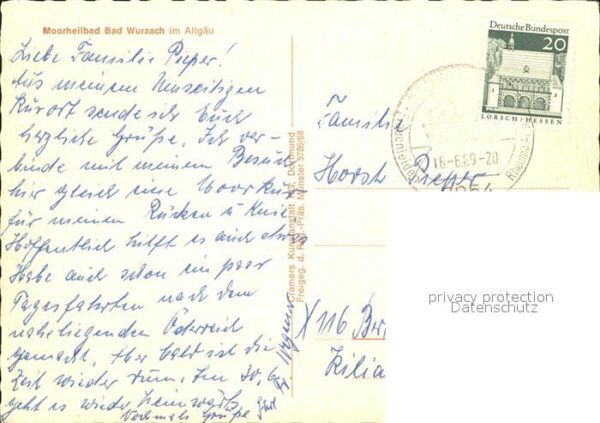 Moorheilbad Bad Wurzach im Allgäu
Liebe Familie Pieper!
Aus meinem umseitigen
Kurort sende ich Euch
herzliche Grüße. Ich ver-
binde mit meinem Besuch
hier gleich eine Moorkur
für meinen Rücken u. Knie
Hoffentlich hilft es auch etwas
Habe auch schon ein paar
Tagesfahrten nach dem
naheliegenden Österreich
gemacht. Aber bald ist die
Zeit wieder rum. Am 30.6.
geht es wieder heimwärts
Nochmals Grüße
Cramers Kunstanstalt KG, Dortmund
Freigeg. d. Reg.-Präs. Münster 5726/68
Deutsche Bundespost
20
LORSCH/HESSEN
16-6.69-20
Familie
Horst Pieper
X 116 Ber
Kilia
privacy protection
Datenschutz